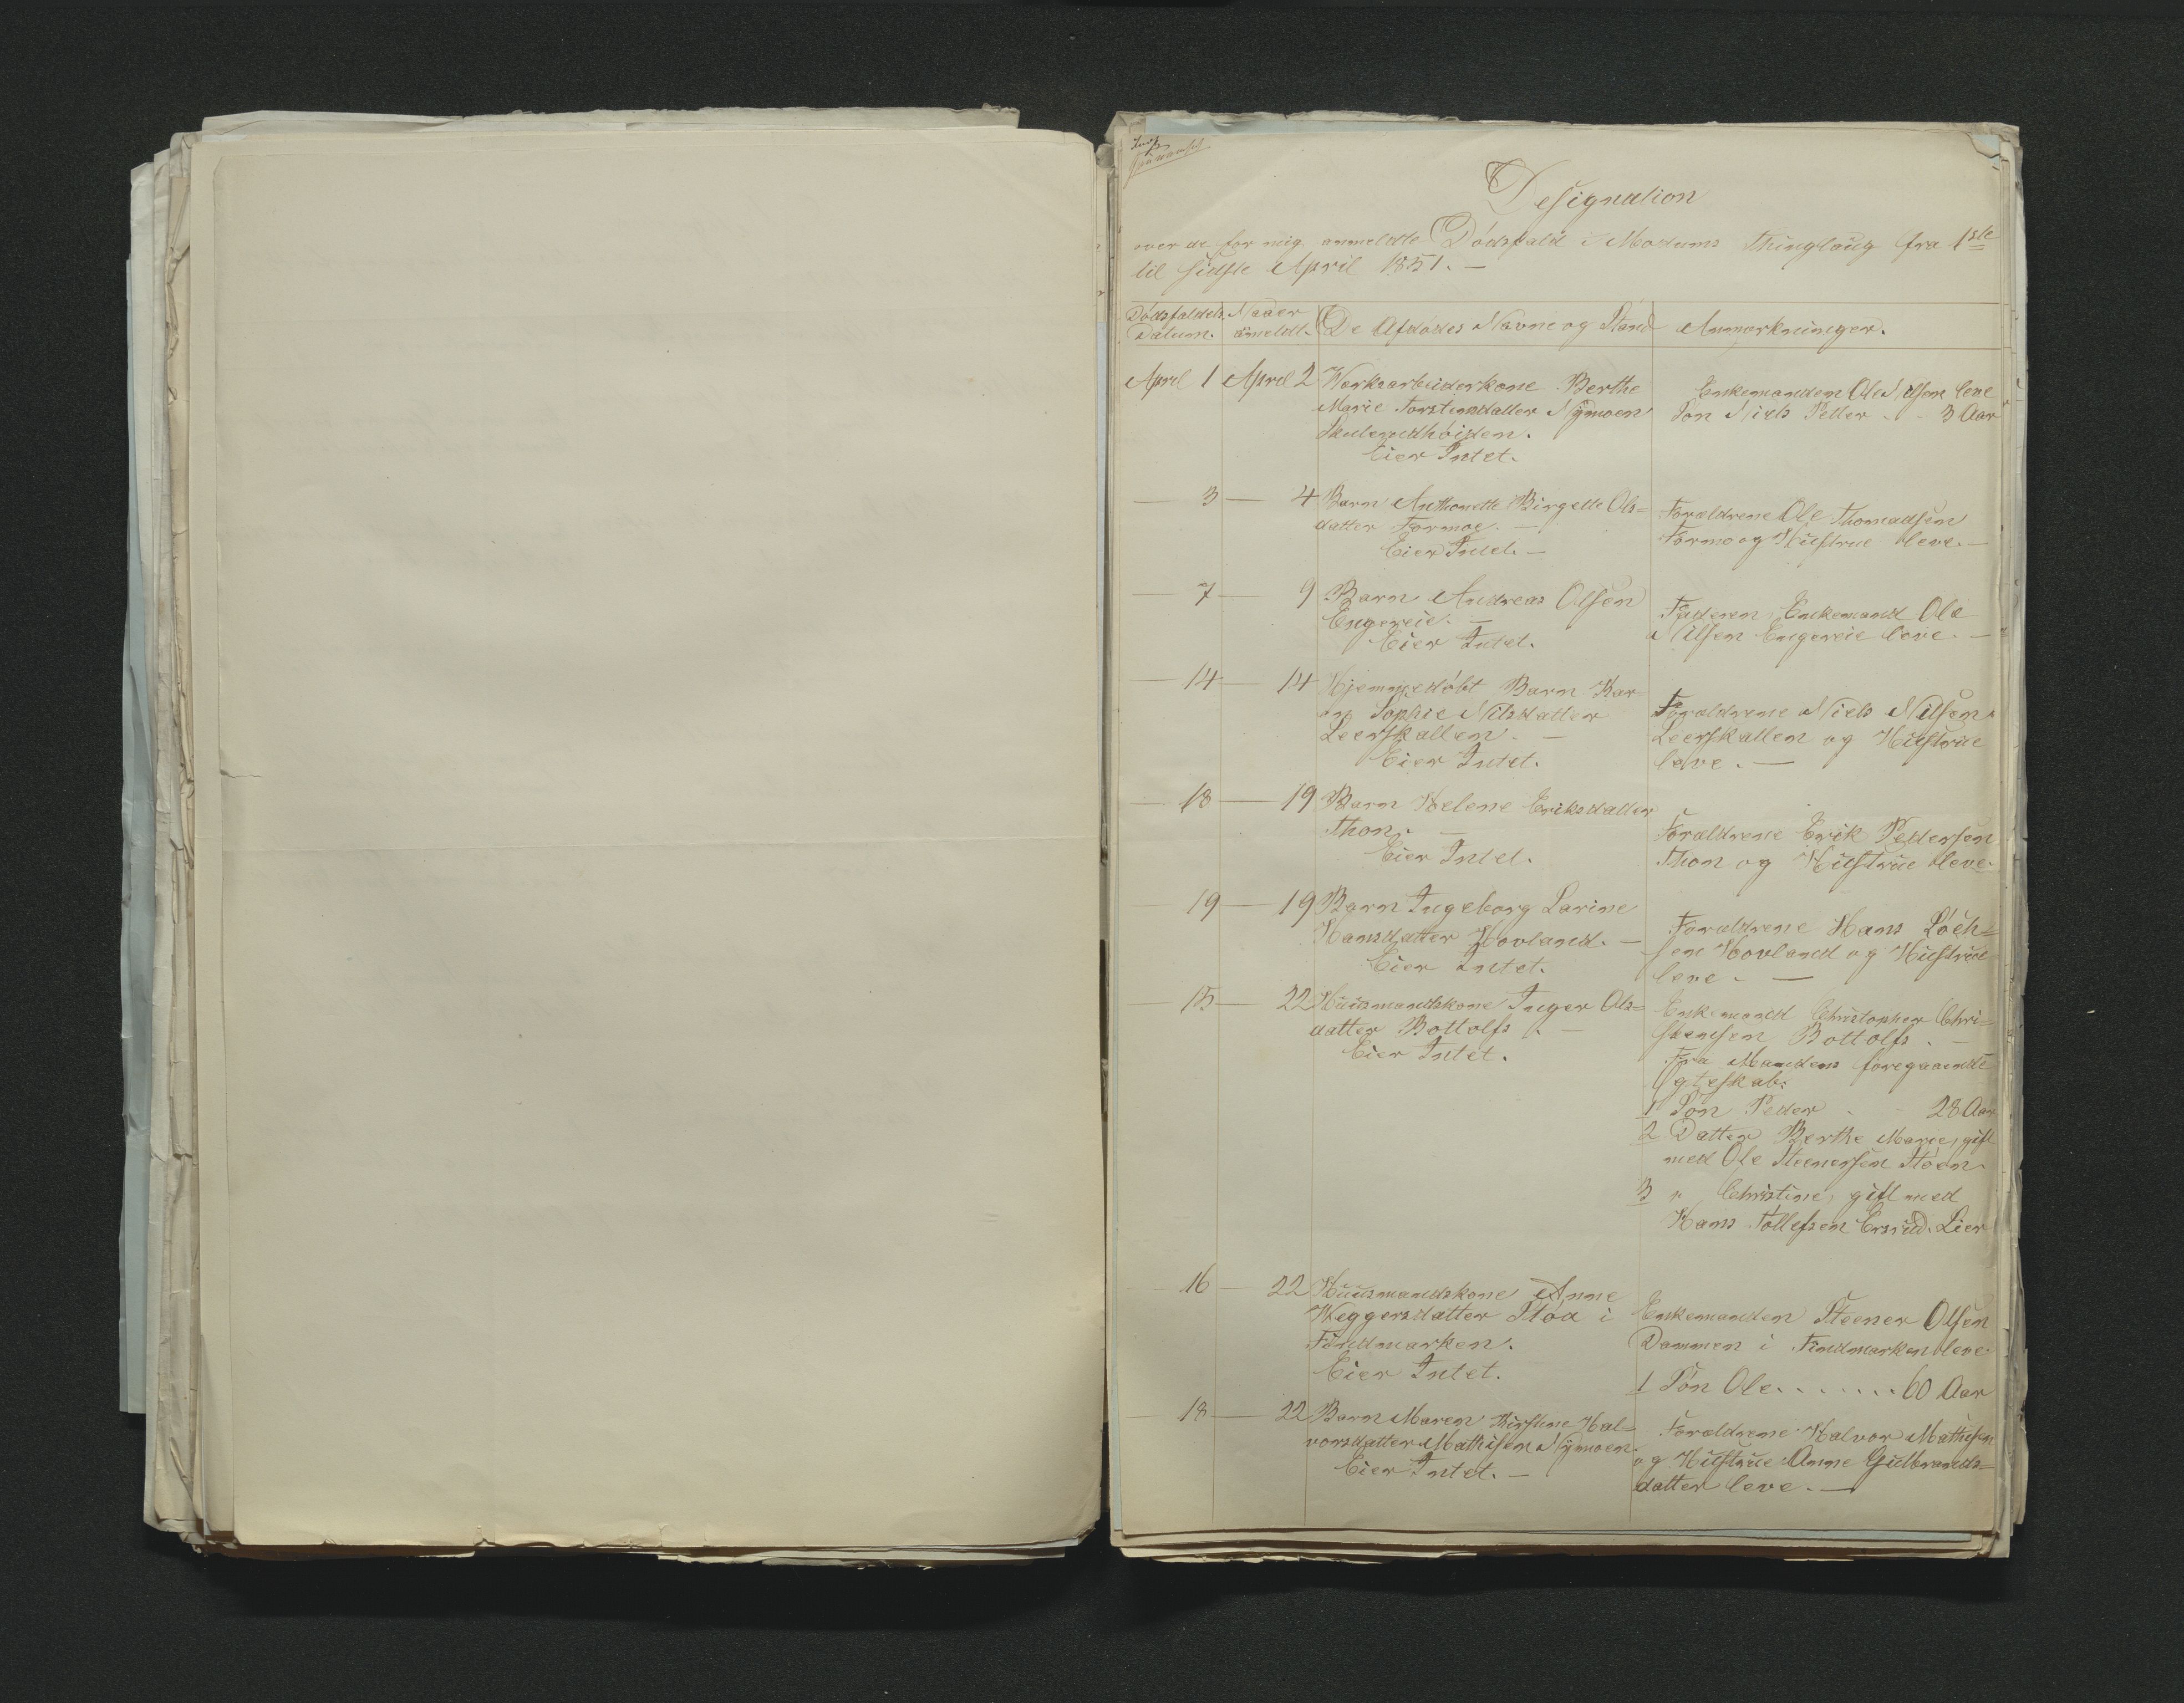 Designation
over de for mig anmeldte Dødsfald i Modums Thinglaug fra 1ste
til sidste April 1851. —
Dødsfaldets Datum.
Naaer ameldt.
De Afdødes Navne og Stand
Anmærkninger.
April 1 April 2 Værksarbeiderkone Berthe
Marie Torstensdatter Nÿmoen
Skuterudhøiden.
Eier Intet.
Enkemanden Ole Nilsen leve
Søn Niels Petter . . 3 Aar
— 3 — 4 Barn Anthonette Birgette Ols=
datter Formoe. —
Eier Intet. —
Forældrene Ole Thomadsen
Formo og Hustrue leve. —
— 7 — 9 Barn Andreas Olsen
Engereie. —
Eier Intet.
Faderen Enkemand Ole
Nilsen Engereie leve. —
— 14 — 14 Hjemmedøbt Barn Kar
en Sophie Nilsdatter
Leerskallen. —
Eier Intet.
Forældrene Niels Nilsen
Leerskallen og Hustrue
leve. —
— 18 — 19 Barn Helene Eriksdatter
Thon. —
Eier Intet.
Forældrene Erik Pedersen
Thon og Hustrue leve.
— 19 — 19 Barn Ingeborg Larine
Hansdatter Hovland. —
Eier Intet.
Forældrene Hans
sen Hovland og Hustrue
leve. —
— 15 — 22 Huusmandskone Inger Ols=
datter Bottolfs . —
Eier Intet.
Enkemand Christopher Chri=
stensen Bottolfs . —
Fra Mandens foregaaende
Egteskab:
1 Søn Peder . - 28 Aar
2 Datter Berthe Marie, gift
med Ole Steenersen Støen.
3 " Christine, gift med
Hans Tollefsen Ersrud. Lier
— 16 — 22 Huusmandskone Anne
Weggersdatter Støa i
Findmarken.
Eier Intet.
Enkemanden Steener Olsen
Dammen i Findmarken leve.
1 Søn Ole. . . . . . . 60 Aar
— 18 — 22 Barn Maren Kirstine Hal=
vorsdatter Mathisen Nÿmoen.
Eier Intet. —
Forældrene Halvor Mathisen
og Hustrue Anne Gulbrands=
datter leve. —